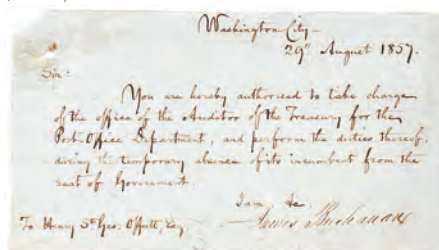 Washington City -
29th August 1857.
Sir:
You are hereby authorised to take charge
of the office of the Auditor of the Treasury for the
Post-Office Department, and perform the duties thereof,
during the temporary absence of its incumbent from the
seat of Government.
I am &c
James Buchanan
To Henry St Geo: Offutt, Esq